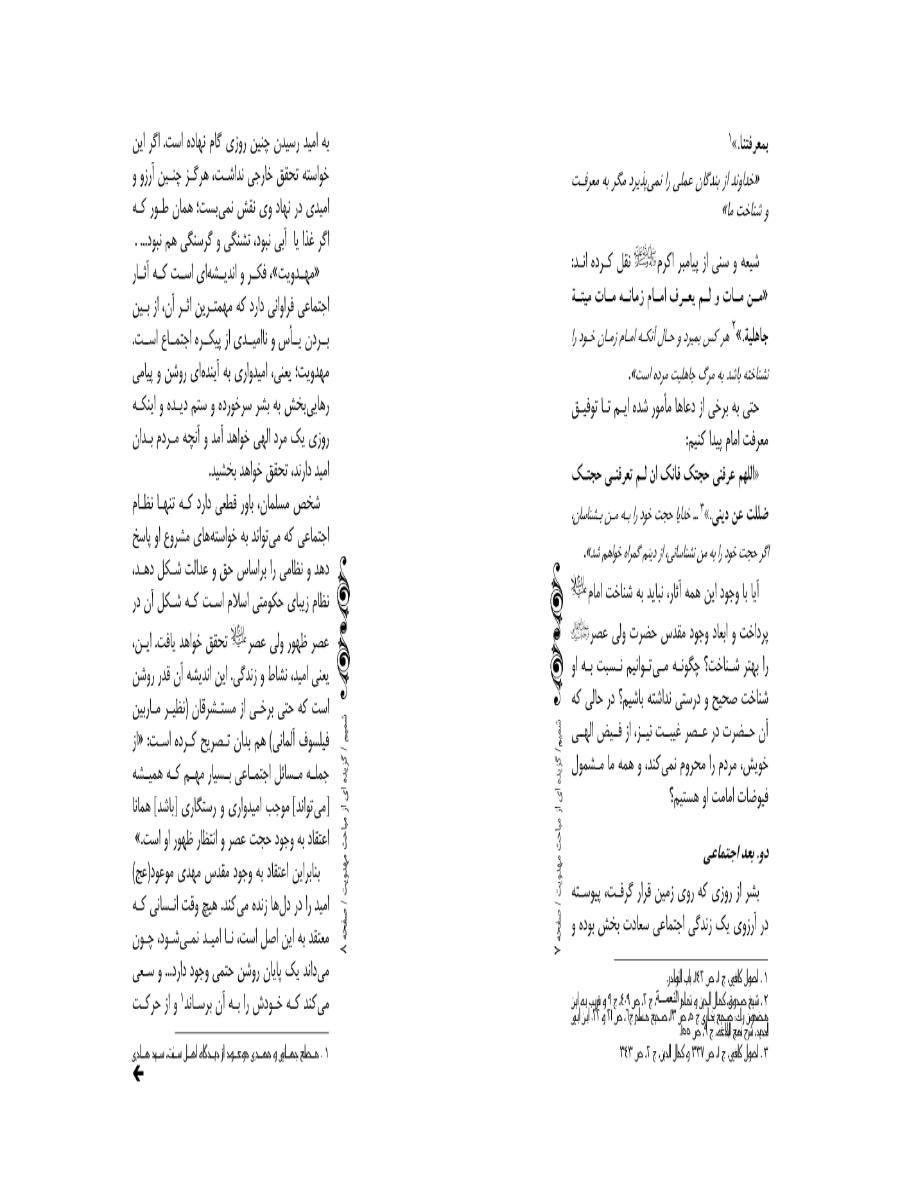 بمعرفتنا.»۱
«خداوند از بندگان عملی را نمی‌پذیرد مگر به معرفت
و شناخت ما»
شیعه و سنی از پیامبر اکرمﷺ نقل کرده اند:
«من مات و لم یعرف امام زمانه مات میتة
جاهلیة.»۲ هر کس بمیرد و حال آنکه امام زمان خود را
نشناخته باشد به مرگ جاهلیت مرده است».
حتی به برخی از دعاها مأمور شده ایم تا توفیق
معرفت امام پیدا کنیم:
«اللهم عرفنی حجتک فانک ان لم تعرفنی حجتک
ضللت عن دینی.»۳ ... خدایا حجت خود را به من بشناسان،
اگر حجت خود را به من نشناسانی، از دینم گمراه خواهم شد».
آیا با وجود این همه آثار، نباید به شناخت امام
پرداخت و ابعاد وجود مقدس حضرت ولی عصر
را بهتر شناخت؟ چگونه می‌توانیم نسبت به او
شناخت صحیح و درستی نداشته باشیم؟ در حالی که
آن حضرت در عصر غیبت نیز، از فیض الهی
خویش، مردم را محروم نمی‌کند، و همه ما مشمول
فیوضات امامت او هستیم؟
دو. بعد اجتماعی
بشر از روزی که روی زمین قرار گرفت، پیوسته
در آرزوی یک زندگی اجتماعی سعادت بخش بوده و
۱. اصول کافی، ج ۱، ص ۱۴۲، باب النوادر.
۲. شیخ صدوق، کمال الدین و تمام النعمة، ج ۲، ص ۴۰۹، ج ۹ و قریب به این
مضمون رك: صحیح بخاری ج ۵، ص ۱۳، صحیح مسلم ج۶، ص ۲۱ و ۲۲، ابن ابی
الحدید، شرح نهج البلاغه، ج ۹، ص ۱۵۵
۳. اصول کافی، ج ۱، ص ۳۳۷ و کمال الدین، ج ۲، ص ۳۴۳
شمیم / گزیده ای از مباحث مهدویت / صفحه ۷
به امید رسیدن چنین روزی گام نهاده است. اگر این
خواسته تحقق خارجی نداشت، هرگز چنین آرزو و
امیدی در نهاد وی نقش نمی‌بست؛ همان طور که
اگر غذا یا آبی نبود، تشنگی و گرسنگی هم نبود... .
«مهدویت»، فکر و اندیشه‌ای است که آثار
اجتماعی فراوانی دارد که مهمترین اثر آن، از بین
بردن یأس و ناامیدی از پیکره اجتماع است.
مهدویت؛ یعنی، امیدواری به آینده‌ای روشن و پیامی
رهایی‌بخش به بشر سرخورده و ستم دیده و اینکه
روزی یک مرد الهی خواهد آمد و آنچه مردم بدان
امید دارند، تحقق خواهد بخشید.
شخص مسلمان، باور قطعی دارد که تنها نظام
اجتماعی که می‌تواند به خواسته‌های مشروع او پاسخ
دهد و نظامی را براساس حق و عدالت شکل دهد،
نظام زیبای حکومتی اسلام است که شکل آن در
عصر ظهور ولی عصر تحقق خواهد یافت. این،
یعنی امید، نشاط و زندگی. این اندیشه آن قدر روشن
است که حتی برخی از مستشرقان (نظیر ماربین
فیلسوف آلمانی) هم بدان تصریح کرده است: «از
جمله مسائل اجتماعی بسیار مهم که همیشه
[می‌تواند] موجب امیدواری و رستگاری [باشد] همانا
اعتقاد به وجود حجت عصر و انتظار ظهور او است.»
بنابراین اعتقاد به وجود مقدس مهدی موعود(عج)
امید را در دل‌ها زنده می‌کند. هیچ وقت انسانی که
معتقد به این اصل است، نا امید نمی‌شود، چون
می‌داند یک پایان روشن حتمی وجود دارد... و سعی
می‌کند که خودش را به آن برساند۱ و از حرکت
۱. مصلح جهانی و مهدی موعود از دیدگاه اهل سنت، سید هادی
شمیم / گزیده ای از مباحث مهدویت / صفحه ۸